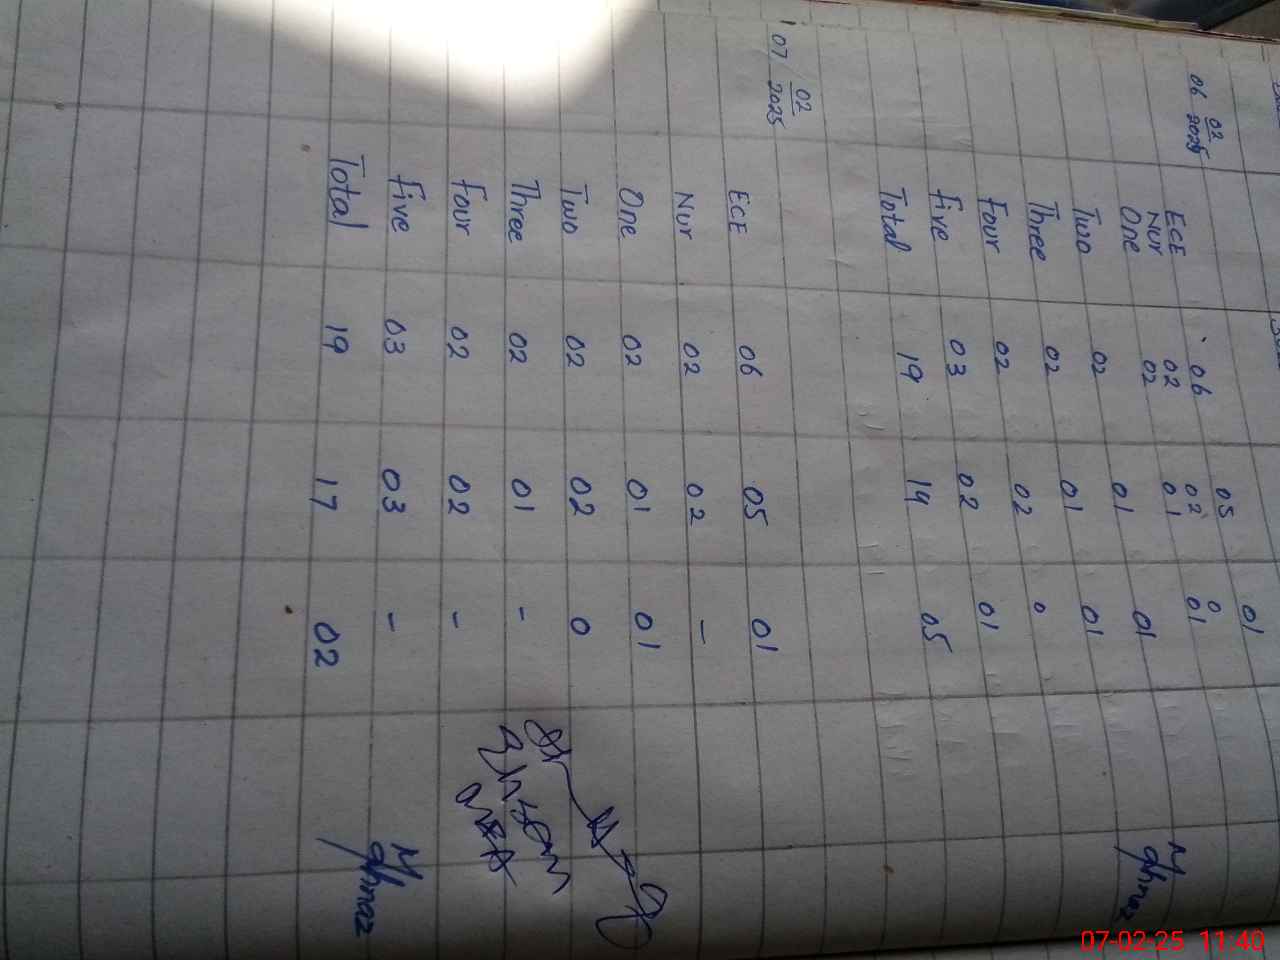 06 02 2025
ECE 06 05 01
Nur 02 02 0
One 02 01 01
Two 02 01 01
Three 02 01 01
Four 02 02 0
Five 03 02 01
Total 19 14 05
07/02 2025
ECE 06 05 01
Nur 02 02 -
One 02 01 01
Two 02 02 0
Three 02 01 -
Four 02 02 -
Five 03 03 -
Total 19 17 02
07-02-25 11:40